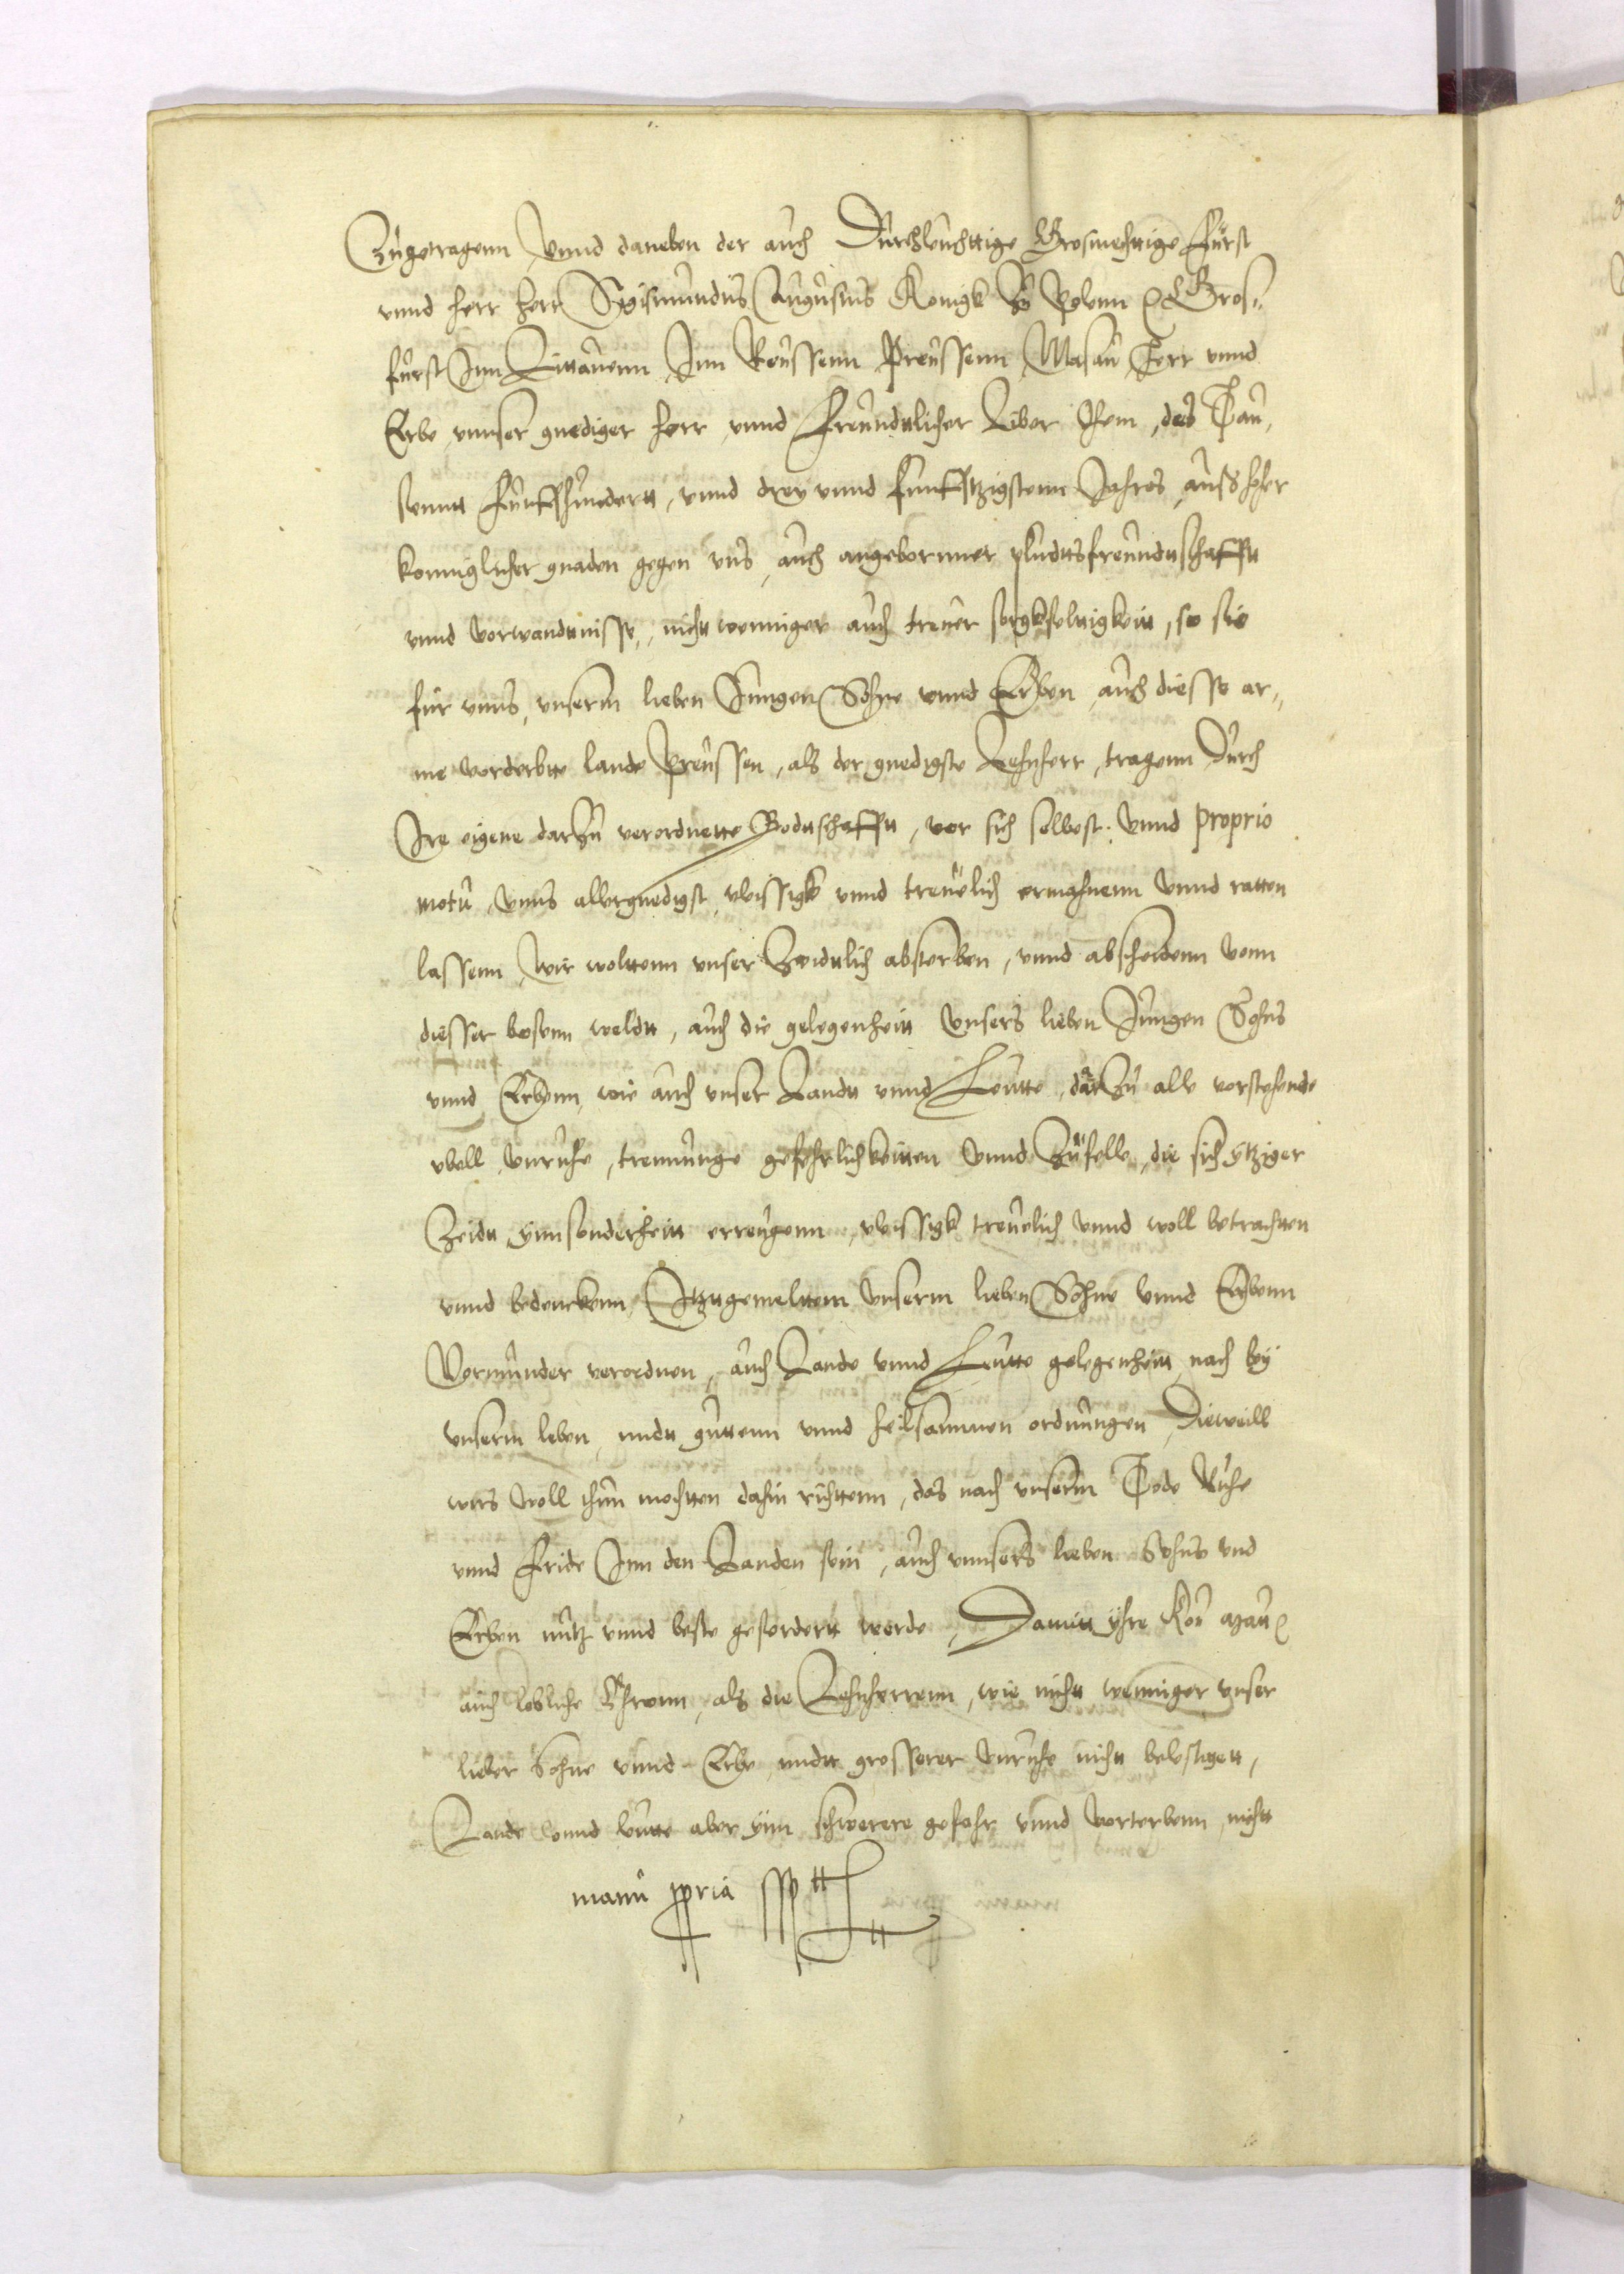 Zugetragenn, Vnnd daneben der auch Durchleuchttige Grosmechttige Fürst
vnnd herr herr Sigismundus Augustus Konigk Zu Polenn Gros„
fürst Inn Littauenn, Inn Reussenn Preussenn, Masau Herr vnnd
Erbe, vnnser gnediger herr, vnnd Freundtlicher Liber Ohm, des Tau„
sentt Funffhundertt, vnnd drey vnnd funfftzigstenn Jahres, auss hoher
konniglicher gnaden gegen vns, auch angebornner pludtsfreundtschafftt
vnnd vorwandtnisse, nichtt wenniger auch treuer sorgkfeltigkeitt, so sie
für vnns, vnserm lieben Jungen Sohne vnnd Erben, auch diesse ar„
me vorderbte lande Preussen, als der gnedigste Lehnherr, tragenn, Durch
Ire eigene darzu verordnette Bodtschafftt, vor sich selbest. Vnnd proprio
motu, Vnns allergnedigst, vleissigk vnnd treuelich ermahnenn Vnnd ratten
lassenn, Wir wolttenn vnser Zeidtlich absterben, vnnd abscheidenn vonn
diesser bösenn weldtt, auch die gelegenheitt Vnsers lieben Jungen Sohns
vnnd Erbenn, wie auch vnser Landtt vnnd Leutte, darzu alle vorstehende
vbell, vnruhe, trennunge gefehrlichkeitten Vnnd Zufelle, die sich ytziger
Zeidtt ynnsonderheitt erreugenn, vleissigk treuelich Vnnd woll betrachtten
vnnd bedenckenn, Itztgemeltem Vnserm lieben Sohne Vnnd Erbenn
Vormunder verordnen, auch Lande vnnd Leutte gelegenheitt, nach bey
vnserm leben, midtt guttenn vnnd heilsammen ordnungen, Dieweill
wirs woll thun mochtten dahin richttenn, das nach vnserm Tode Ruhe
vnnd Fride Inn den Landen sein, auch vnnsers lieben Sohns vnd
Erben nutz vnnd beste gefordertt werde, Damitt yhre Kon
auch lobliche Chronn, als die Lehnherrenn, wie nichtt wenniger vnser
lieber Sohne vnnd Erbe, midtt grosserer vnruhe nichtt belestigett,
Lande vnnd leutte aber ynn schwerere gefahr vnnd vorterbenn, nichtt
manu ppria sspt